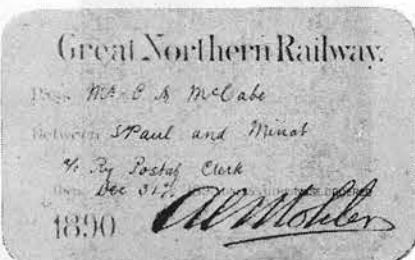 Great Northern Railway.
Pass Mr C A McCabe
Between St Paul and Minot
a/c Ry Postal Clerk
Until Dec 31st
1890